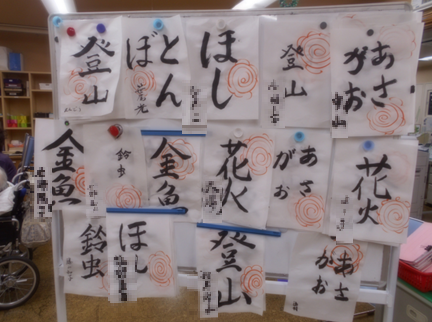 登山
とん
ぼ
ほし
登山
あさ
がお
金魚
鈴虫
金魚
花火
あさ
がお
花火
鈴虫
ほし
登山
あさ
がお